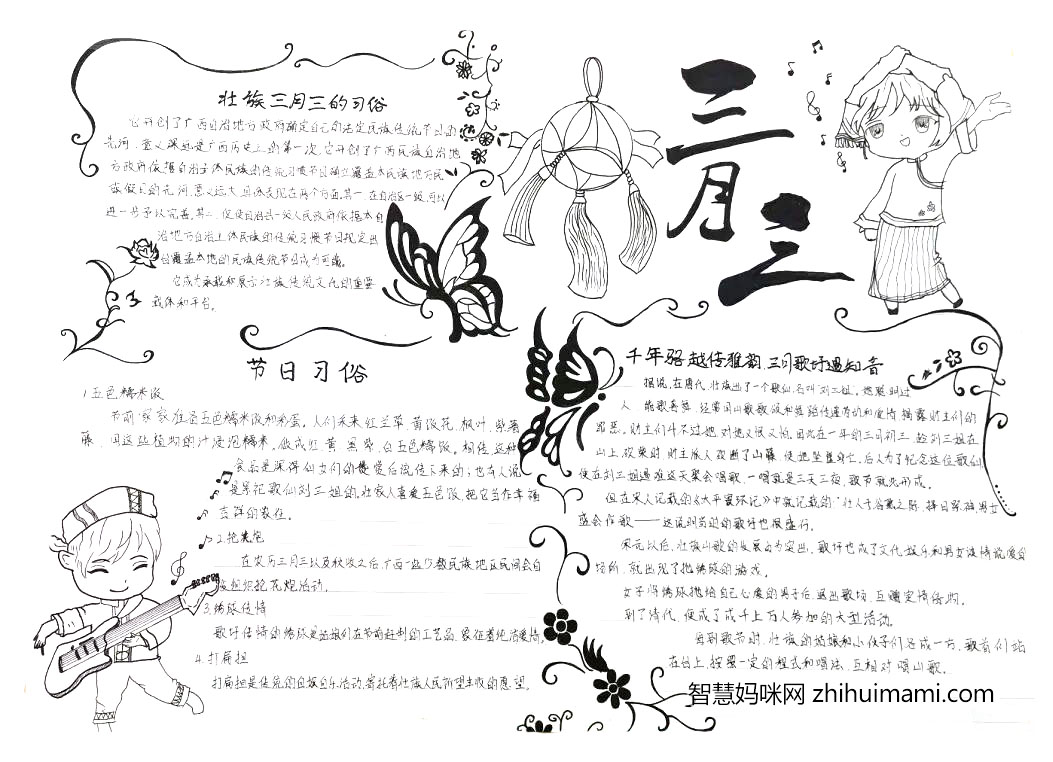 壮族三月三的习俗
它开创了广西自治地方政府确定自己的法定民族传统节日的
先河,意义深远是广西历史上的第一次,它开创了广西民族自治地
方政府依据自治主体民族的传统习惯节日确立覆盖本民族地方民
族假日的先河,意义远大具体表现在两个方面,其一,在自治区一级,可以
进一步予以完善,其二,促使自治县一级人民政府依据本自
治地方自治主体民族的传统习惯节日规定出
台覆盖本地的民族传统节日成为可能。
它成为承载和展示壮族传统文化的重要
载体和平台。
三月三
节日习俗
1.五色糯米饭
节前家家准备五色糯米饭和彩蛋。人们采来红兰草、黄饭花、枫叶、紫蕃
藤,用这些植物的汁浸泡糯米,做成红、黄、黑、紫、白五色糯饭。相传,这种
食品是深得仙女们的赞爱后流传下来的;也有人说
是祭祀歌仙刘三姐的,壮家人喜爱五色饭,把它当作幸福
吉祥的象征。
2.抢花炮
在农历三月三以及秋收之后,广西一些少数民族地区民间会自
发组织抢花炮活动。
3.绣球传情
歌圩传情的绣球是姑娘们在节前赶制的工艺品,象征着纯洁爱情,
4.打扁担
打扁担是传统的自娱自乐活动,寄托着壮族人民祈望丰收的愿望。
千年骆越传雅韵,三月歌圩遇知音
据说,在唐代,壮族出了一个歌仙,名叫刘三姐,她聪明过
人,能歌善舞,经常用山歌歌颂和赞扬传递劳动和爱情,揭露财主们的
罪恶。财主们斗不过她,对她又恨又怕。因此在一年的三月初三,趁刘三姐在
山上砍柴时,财主派人砍断了山藤,使她坠崖身亡,后人为了纪念这位歌仙,
便在刘三姐遇难这天聚会唱歌,一唱就是三天三夜,歌节就此形成。
但在宋人记载的《太平寰环记》中就记载的"壮人于谷熟之际,择日祭神男女
盛会作歌——这说明当时的歌圩也很盛行。
宋元以后,壮族山歌的发展更为突出,歌圩也成了文化娱乐和男女谈情说爱的
场所,就出现了抛绣球的游戏。
女子将绣球抛给自己心愿的男子后,退出歌场,互赠定情信物。
到了清代,便成了成千上万人参加的大型活动。
每到歌节时,壮族的姑娘和小伙子们各成一方,歌首们站
在台上,按照一定的程式和唱法,互相对唱山歌。
智慧妈咪网 zhihuimami.com